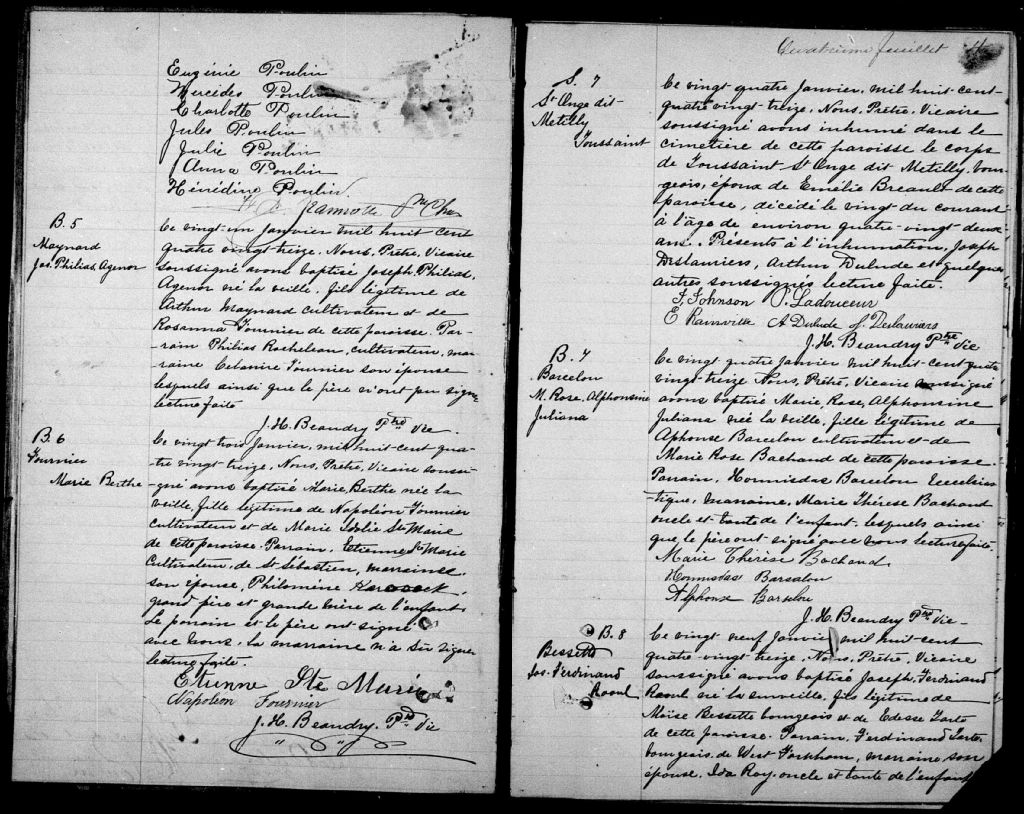 Eugénie Poulin
Mercédes Poulin
Charlotte Poulin
Jules Poulin
Julie Poulin
Anna Poulin
Hénédine Poulin
B. 5
Maynard
Jos. Philias, Agenor
Ce vingt-un janvier mil huit cent
quatre vingt treize, Nous, Prêtre, Vicaire
soussigné avons baptisé Joseph, Philias,
Agenor né la veille, fils légitime de
Arthur Maynard cultivateur et de
Rosanna Fournier de cette paroisse. Par-
rain Philias Rocheleau, cultivateur, mar-
raine Célanire Fournier son épouse
lesquels ainsi que le père n'ont pu signer
lecture faite
J. H. Beaudry Ptre Vic
B. 6
Fournier
Marie Berthe
Ce vingt trois janvier, mil huit cent qua-
tre vingt treize, Nous, Prêtre, Vicaire soussi-
gné avons baptisé Marie Berthe née la
veille, fille légitime de Napoléon Fournier
cultivateur et de Marie Ste Marie
de cette paroisse. Parrain, Etienne Ste Marie
Cultivateur, de St Sébastien, marraine,
son épouse, Philomène
grand père et grande mère de l'enfant.
Le parrain et le père ont signé
avec nous. la marraine n'a su signer
lecture faite.
Etienne Ste Marie
Napoléon Fournier
J. H. Beaudry, Ptre Vic
Quatrième feuillet
S. 7
St Onge dit
Metilly
Toussaint
Ce vingt quatre janvier, mil huit cent-
quatre vingt-treize, Nous, Prêtre, Vicaire
soussigné avons inhumé dans le
cimetière de cette paroisse le corps
de Toussaint St Onge dit Metilly, bour-
geois, époux de Emélie Breault de cette
paroisse, décédé le vingt du courant
à l'âge de environ quatre-vingt deux
ans. Présents à l'inhumation, Joseph
Deslauriers, Arthur Dulude et quelques
autres soussignés lecture faite.
J. Johnson P. Ladouceur
E Rainville A Dulude J. Deslauriers
J. H. Beaudry Ptre Vic
B. 7
Barcelou
M. Rose, Alphonsine
Juliana
Ce vingt quatre janvier mil huit-cent quatre
vingt-treize Nous, Prêtre, Vicaire soussigné
avons baptisé Marie, Rose, Alphonsine
Juliana née la veille, fille légitime de
Alphonse Barcelou cultivateur et de
Marie Rose Bachand de cette paroisse.
Parrain, Hormisdas Barcelou Ecclésias-
tique, marraine, Marie Thérèse Bachand
oncle et tante de l'enfant, lesquels ainsi
que le père ont signé avec nous lecture faite.
Marie Thérèse Bachand
Hormisdas Barsalou
Alphonse Barselou
J. H. Beaudry Ptre Vic
B. 8
Bessette
Jos. Ferdinand
Raoul
Ce vingt neuf janvier mil huit cent
quatre-vingt treize, Nous, Prêtre, Vicaire
soussigné avons baptisé Joseph, Ferdinand
Raoul né la surveille, fils légitime de
Moïse Bessette bourgeois et de Edesse Tarte
de cette paroisse. Parrain, Ferdinand Tarte
bourgeois, de West Farnham, marraine son
épouse, Ida Roy, oncle et tante de l'enfant